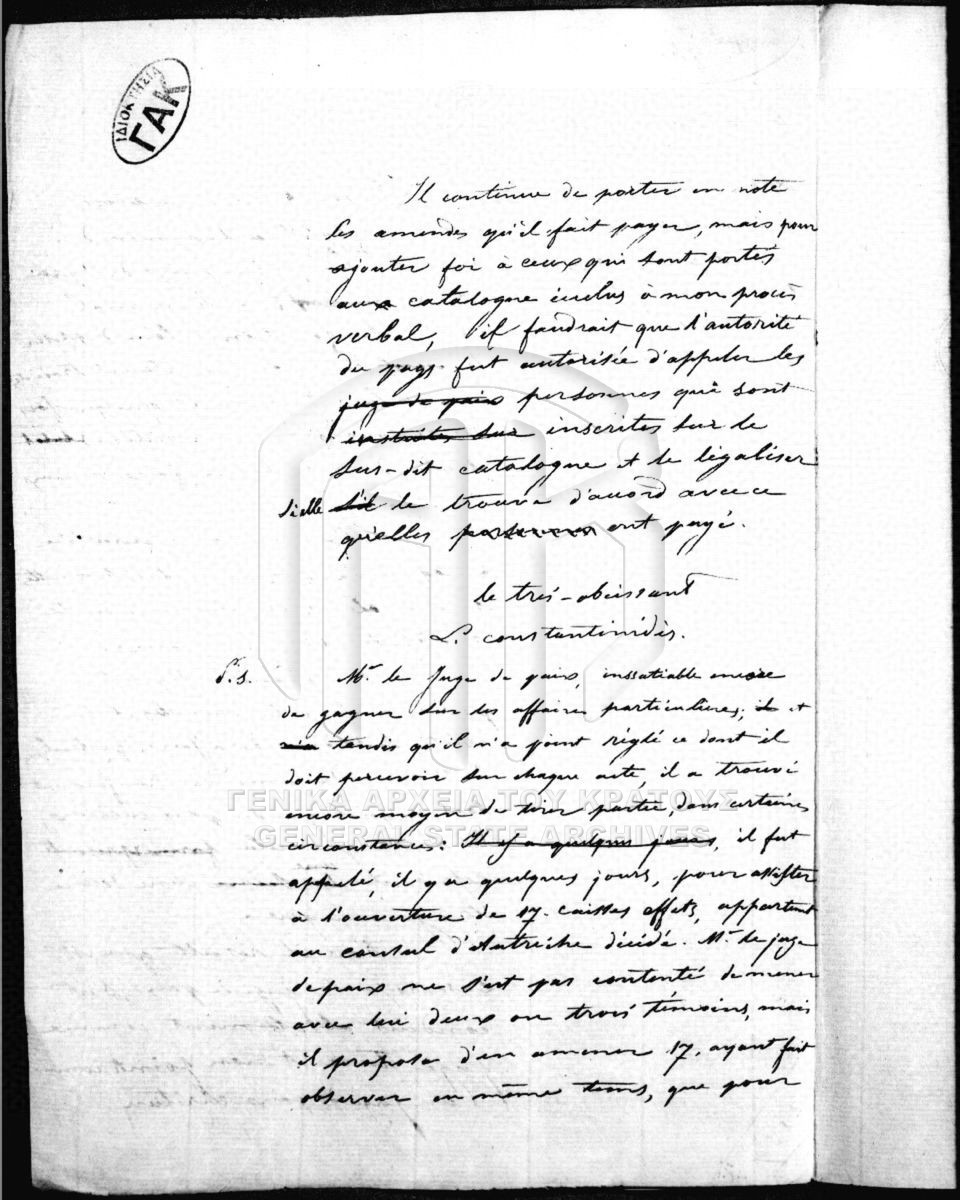 ΙΔΙΟΚΤΗΣΙΑ
ΓΑΚ
Il continue de porter en note
les amendes qu'il fait payer, mais pour
ajouter foi à ceux qui sont portés
aux catalogue inclus à mon procès
verbal, il faudrait que l'autorité
du pays fut autorisée d'appeler les
juge de paix personnes qui sont
inscrites sur le
sus-dit catalogue et le légaliser
s'ielle s'il le trouve d'acord avec ce
qu'elles ont payé.
le très-obeissant
L. constantinidis.
P.S. Mr. le Juge de paix, inssatiable encore
de gagner sur les affaires particulieres, il et
tandis qu'il n'a point réglé ce dont il
doit percevoir sur chaque acte, il a trouvé
encore moyen de tirer partie, dans certaines
circonstances: Il y a quelques jours, il fut
appelé, il y a quelques jours, pour assister
à l'ouverture de 17. caisses effets, appartent
au consul d'Autriche décidé. Mr. le juge
de paix ne s'est pas contenté de mener
avec lui deux ou trois témoins, mais
il proposa d'en amener 17. ayant fait
observer en même tems, que pour
ΓΕΝΙΚΑ ΑΡΧΕΙΑ ΤΟΥ ΚΡΑΤΟΥΣ
GENERAL STATE ARCHIVES